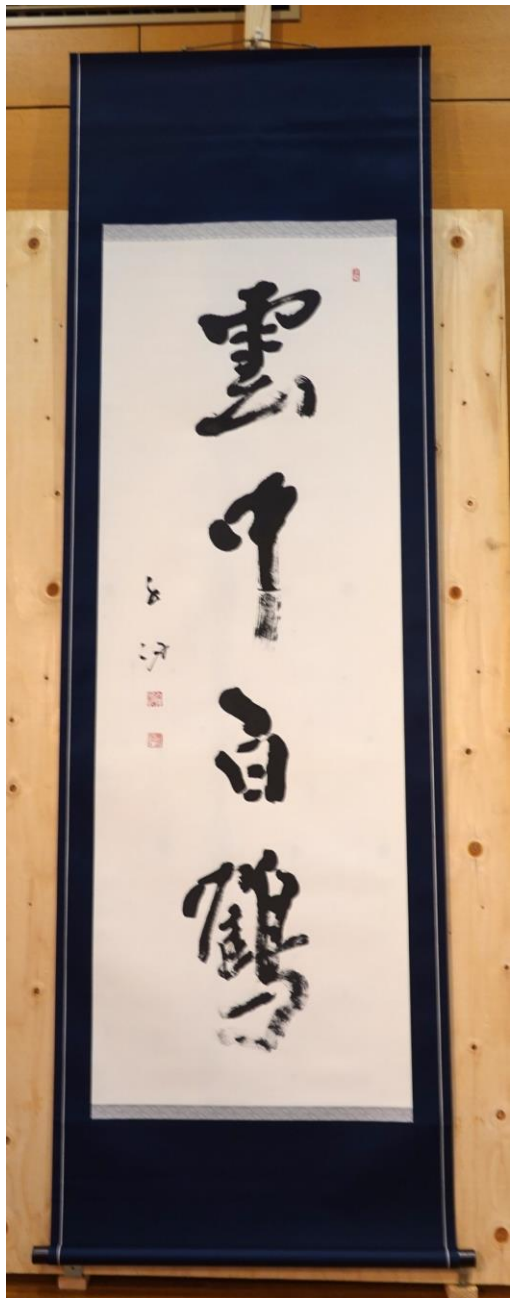 雲中白鶴